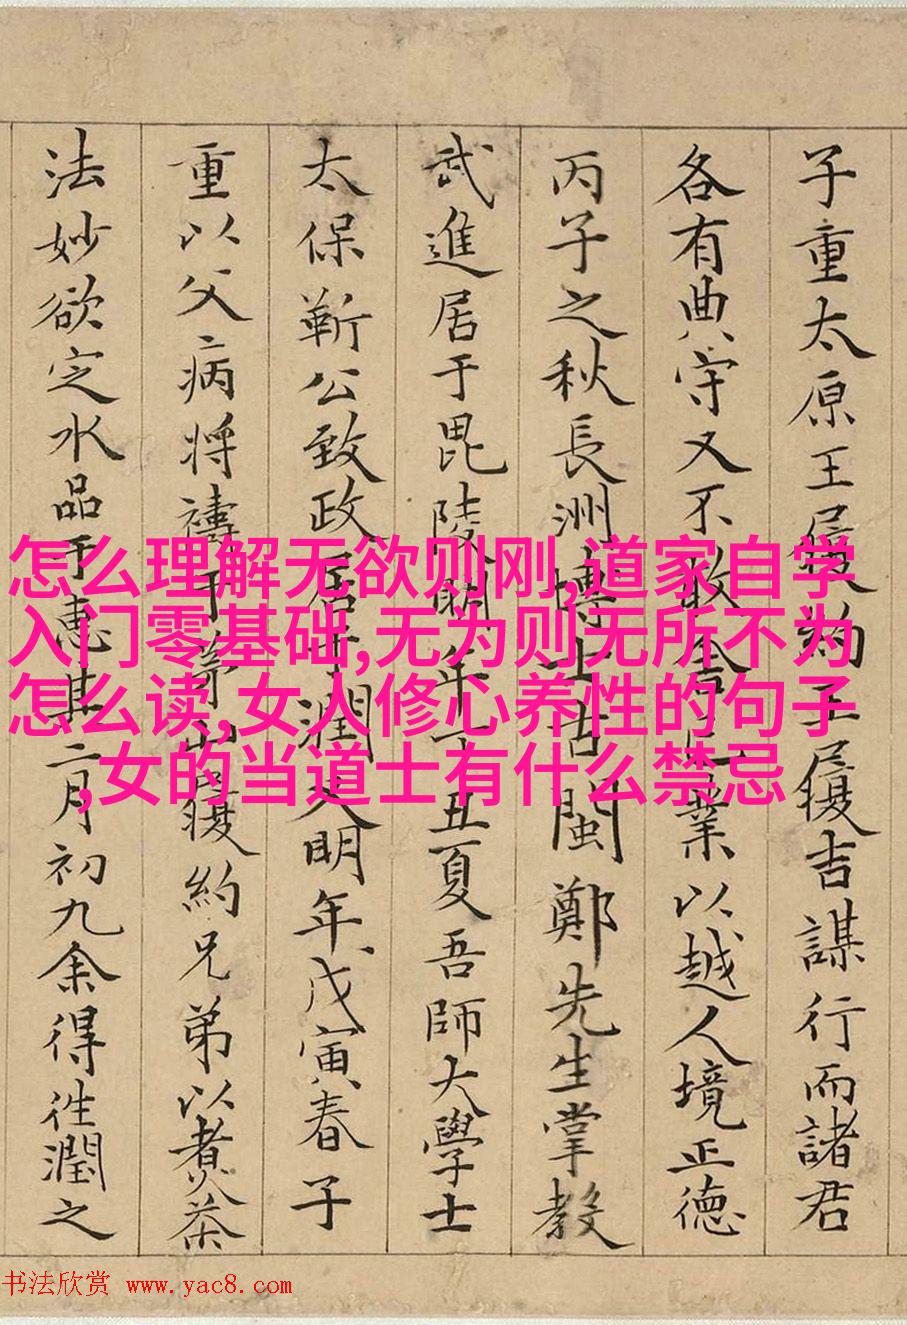 子重太原王履約王履吉謀行而諸君
各有典守又不敢舍己業以越人境正德
丙子之秋長洲博士古閩鄭先生掌教
武進居于毘陵明年丁丑夏吾師大學士
太保靳公致政居于潤又明年戊寅春子
重以父病將禱于茅山履約兄弟以煮茶
法妙欲定水品于惠其二月初九余得往潤之
怎么理解无欲则刚,道家自学
入门零基础,无为则无所不为
怎么读,女人修心养性的句子
,女的当道士有什么禁忌
书法欣赏 www.yac8.com